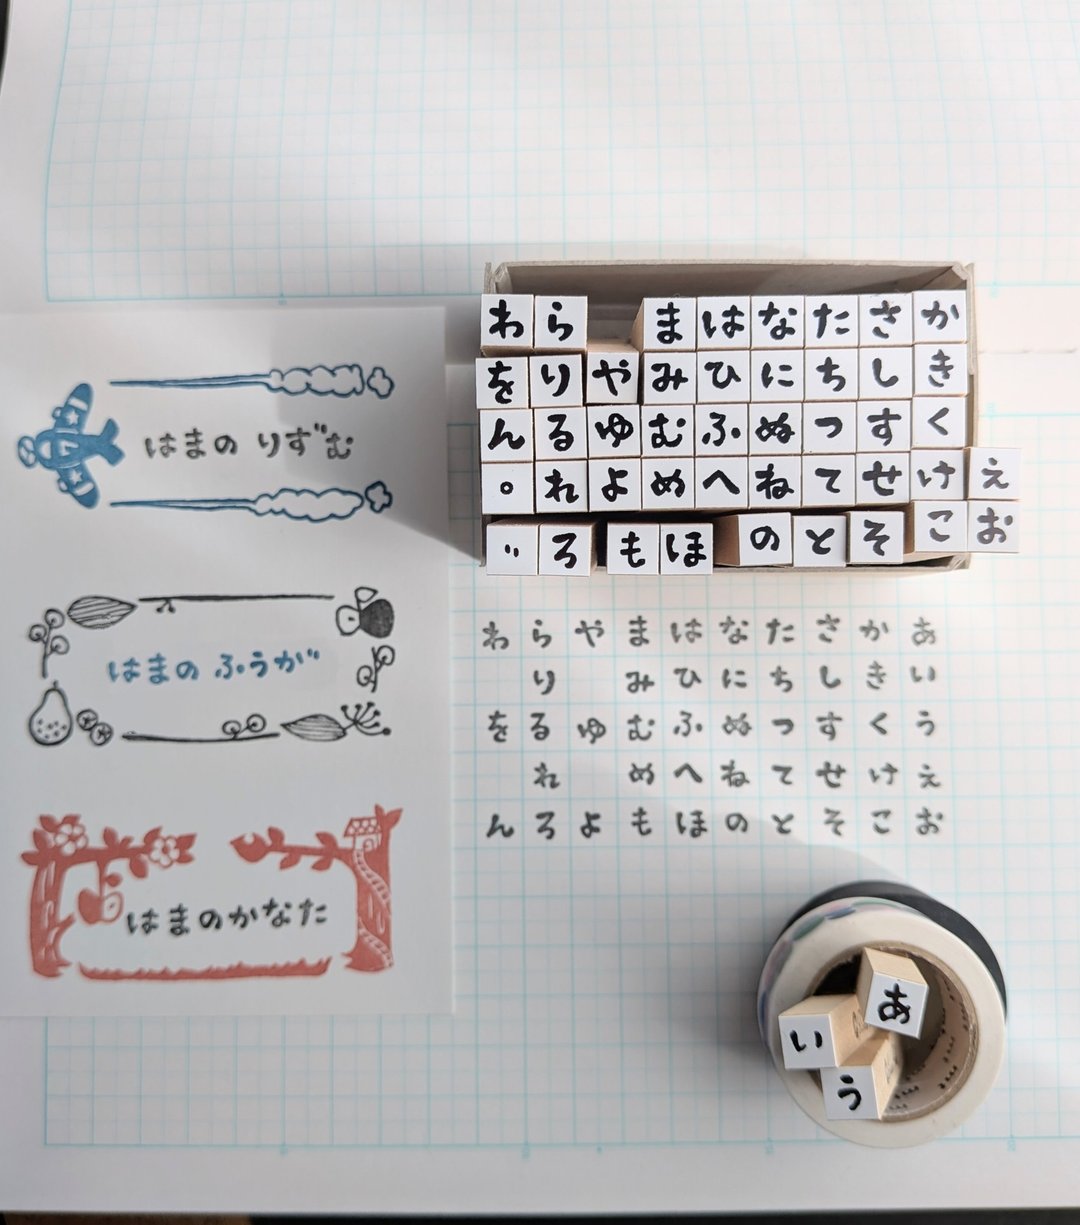 はまの りずむ
はまの ふうが
はまのかなた
わ ら ま は な た さ か
を り や み ひ に ち し き
ん る ゆ む ふ ぬ つ す く
゜ れ よ め へ ね て せ け え
゛ ろ も ほ の と そ こ お
わ ら や ま は な た さ か あ
り み ひ に ち し き い
を る ゆ む ふ ぬ つ す く う
れ め へ ね て せ け え
ん ろ よ も ほ の と そ こ お
あ
い
う